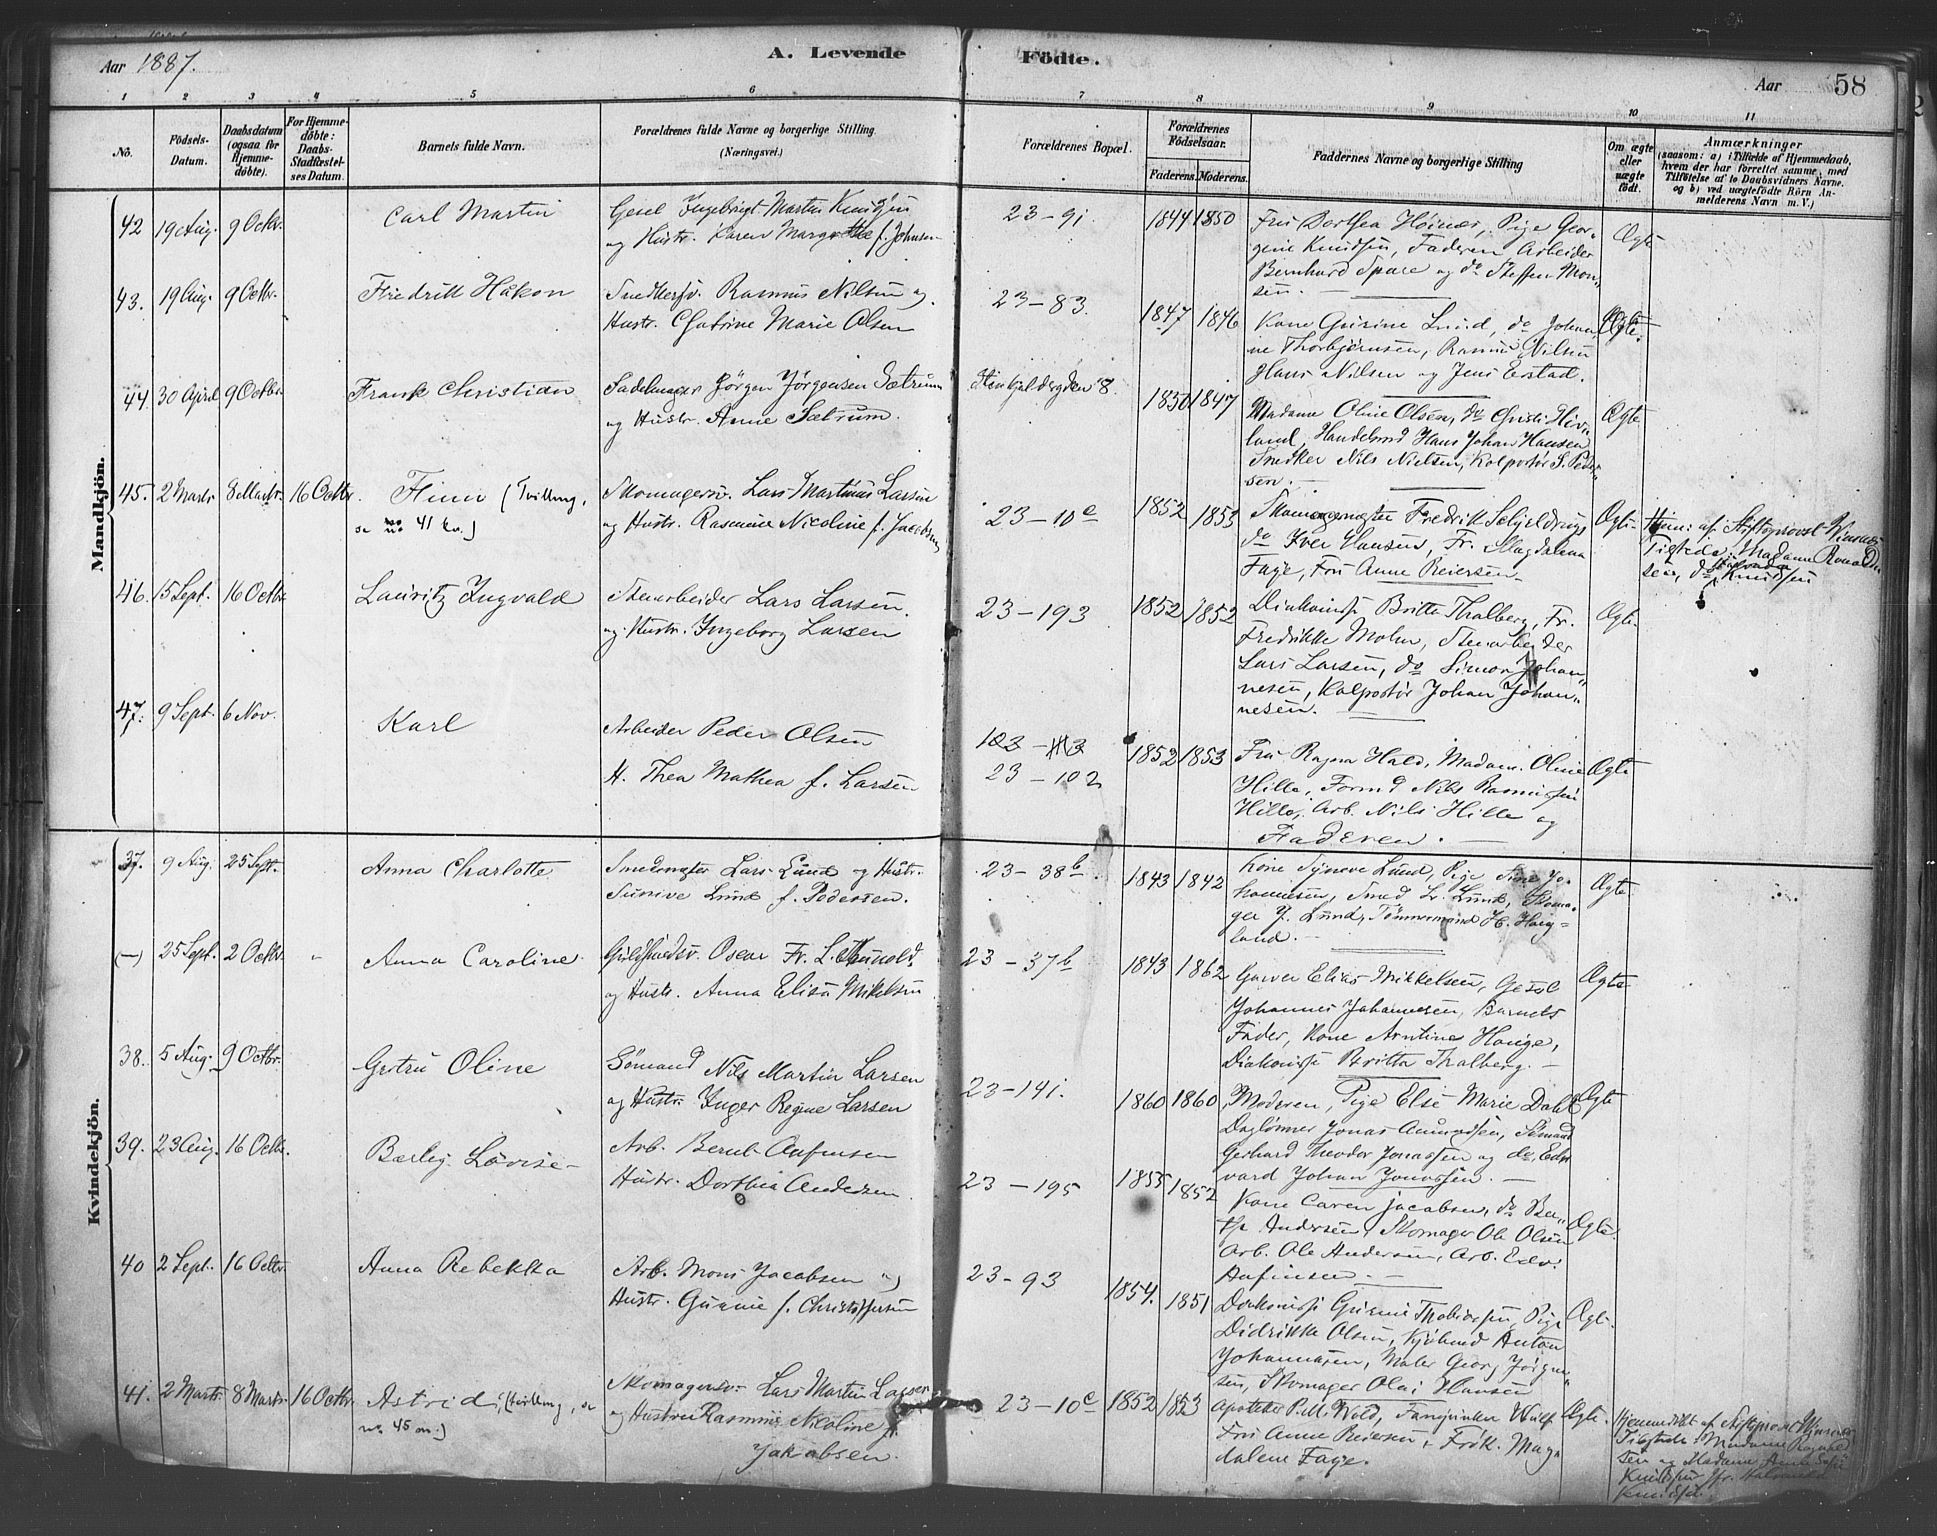 Aar 1887.
A. Levende Födte.
Aar 58
1 2 3 4 5 6 7 8 9 10 11
No.
Födsels-Datum.
Daabsdatum (ogsaa for Hjemme-døbte).
For Hjemme-døbte: Daabs-Stadfæstel-ses Datum.
Barnets fulde Navn.
Forældrenes fulde Navne og borgerlige Stilling. (Næringsvei.)
Forældrenes Bopæl.
Forældrenes Födselsaar.
Faderens. Moderens.
Faddernes Navne og borgerlige Stilling
Om ægte eller uægte födt.
Anmærkninger
(saasom: a) i Tilfælde af Hjemmedaab, hvem der har forrettet samme, med Tilföielse af to Daabsvidners Navne. og b) ved uægtefödte Börn An-melderens Navn m. V.)
Mandkjön.
42 19 Aug. 9 Octbr. Carl Martin
Gesel Ingebrigt Martin Knudsen
og Hustr. Karen Margrethe f. Johnsen
23-91 1844 1850
Fru Dorthea Höinæs, Pige Geor-
gine Knudsen, Faderen Arbeider
Bernhard Spare og do Steffen Mon-
sen.
Ægte
43. 19 Aug. 9 Octbr. Fredrik Håkon
Snedkersv. Rasmus Nilsen og
Hustr. Cathrine Marie Olsen
23-83. 1847 1846
Kone Gurine Lund, do Johan-
ne Thorbjørnsen, Rasmus Nilsen
Hans Nielsen og Jens Erstad.
Ægte.
44. 30 April 9 Octbr. Frank Christian
Sadelmager Jörgen Jörgensen Sætrum
og Hustr. Anne Sætrum.
Steinkjeldergden 8. 1850 1847
Madame Oline Olsen, do
land, Handelsmd Hans Johan Hansen
Snedker Nils Nielsen, Kolportør S. Peder-
sen.
Ægte
45. 2 Marts 8 Marts 16 Octbr. Finn (Tvilling,
se no 41 kv.)
Skomagersv. Lars Martinus Larsen
og Hustr. Rasmine Nicoline f. Jacobsen
23-10c 1852 1853
Skomagermester Fredrik Schjeldrup
do Iver Hansen, Fr. Magdalena
Faye, Fru Anne Reiersen
Ægte
Hjem: af Stiftsprovst
Madame
sen, do Knudsen
46. 15 Sept. 16 Octbr Lauritz Ingvald
Stenarbeider Lars Larsen
og Hustr. Ingeborg Larsen
23-193 1852 1852
Diakonisse Britta Thalberg, Fr.
Fredrikke Mohn, Stenarbeider
Lars Larsen, do Simon Johan-
nesen, Kolportør Johan Johan-
nesen.
Ægte.
47. 9 Sept. 6 Nov. Karl
Arbeider Peder Olsen
H. Thea Mathea f. Larsen
23-102 1852 1853
Fru Ragna Hald, Madam. Oline
Hille, Formd Nils Rasmussen
Hille, Arb. Nils Hille og
Faderen.
Ægte
Kvindekjön.
37. 9 Aug. 25 Sept. Anna Charlotte
Smedmester Lars Lund og Hustr.
Sunive Lund f. Pedersen.
23-38b. 1843 1842
Kone Synove Lund, Pige Sine Jo-
hannesen, Smed Lr. Lund, Skoma-
ger J. Lund, Tömmermand H. Haug-
land.
Ægte
(-) 25 Sept. 2 Octbr. Anna Caroline
Guldsmedsv. Oscar Fr. L.
og Hustr. Anna Elisa Mikelsen
23-37b 1843 1862
Garver Elias Mikkelsen, Gesel
Johannes Johannesen, Barnets
Fader, Kone Arntine Hauge,
Diakonisse Britta Thalberg.
Ægte
38. 5 Aug. 9 Octbr. Gertru Oline
Sömand Nils Martin Larsen
og Hustr. Inger Regine Larsen
23-141. 1860 1860
Moderen, Pige Else Marie Dahl
Daglönner Jonas Amundsen, Sömand
Gerhard Theodor Jonassen og do Ed-
vard Johan Jonassen.
Ægte
39. 23 Aug. 16 Octbr. Lovise
Arb. Bernt Anfinsen
Hustr. Dorthea Andersen
23-195 1855 1852
Kone Caren Jacobsen, do Ber-
the Andersen, Skomager Ole Olsen
Arb. Ole Andersen, Arb. Edv.
Anfinsen.
Ægte.
40 2 Sept. 16 Octbr. Anna Rebekka
Arb. Mons Jacobsen og
Hustr. Gunnie f. Christoffersen
23-93 1854. 1851
Diakonisse Gurine Thobiassen, Pige
Didrikke Olsen, Anton
Johannesen, Maler Georg Jörgen-
sen, Skomager Olai Hansen
Ægte.
41. 2 Marts 8 Marts 16 Octbr. Astrid, (tvilling, se
no 45 m.)
Skomagersv. Lars Martin Larsen
og Hustru Rasmine Nicoline f.
Jakobsen.
23-10c 1852 1853
Apotheker P. M. Wold, Wulf
Fru Anne Reiersen, Frök. Mag-
dalene Faye.
Ægte.
Hjemmedöbt af Stiftsprovst
Madame
sen og Madame
Knudsen
Knudsen